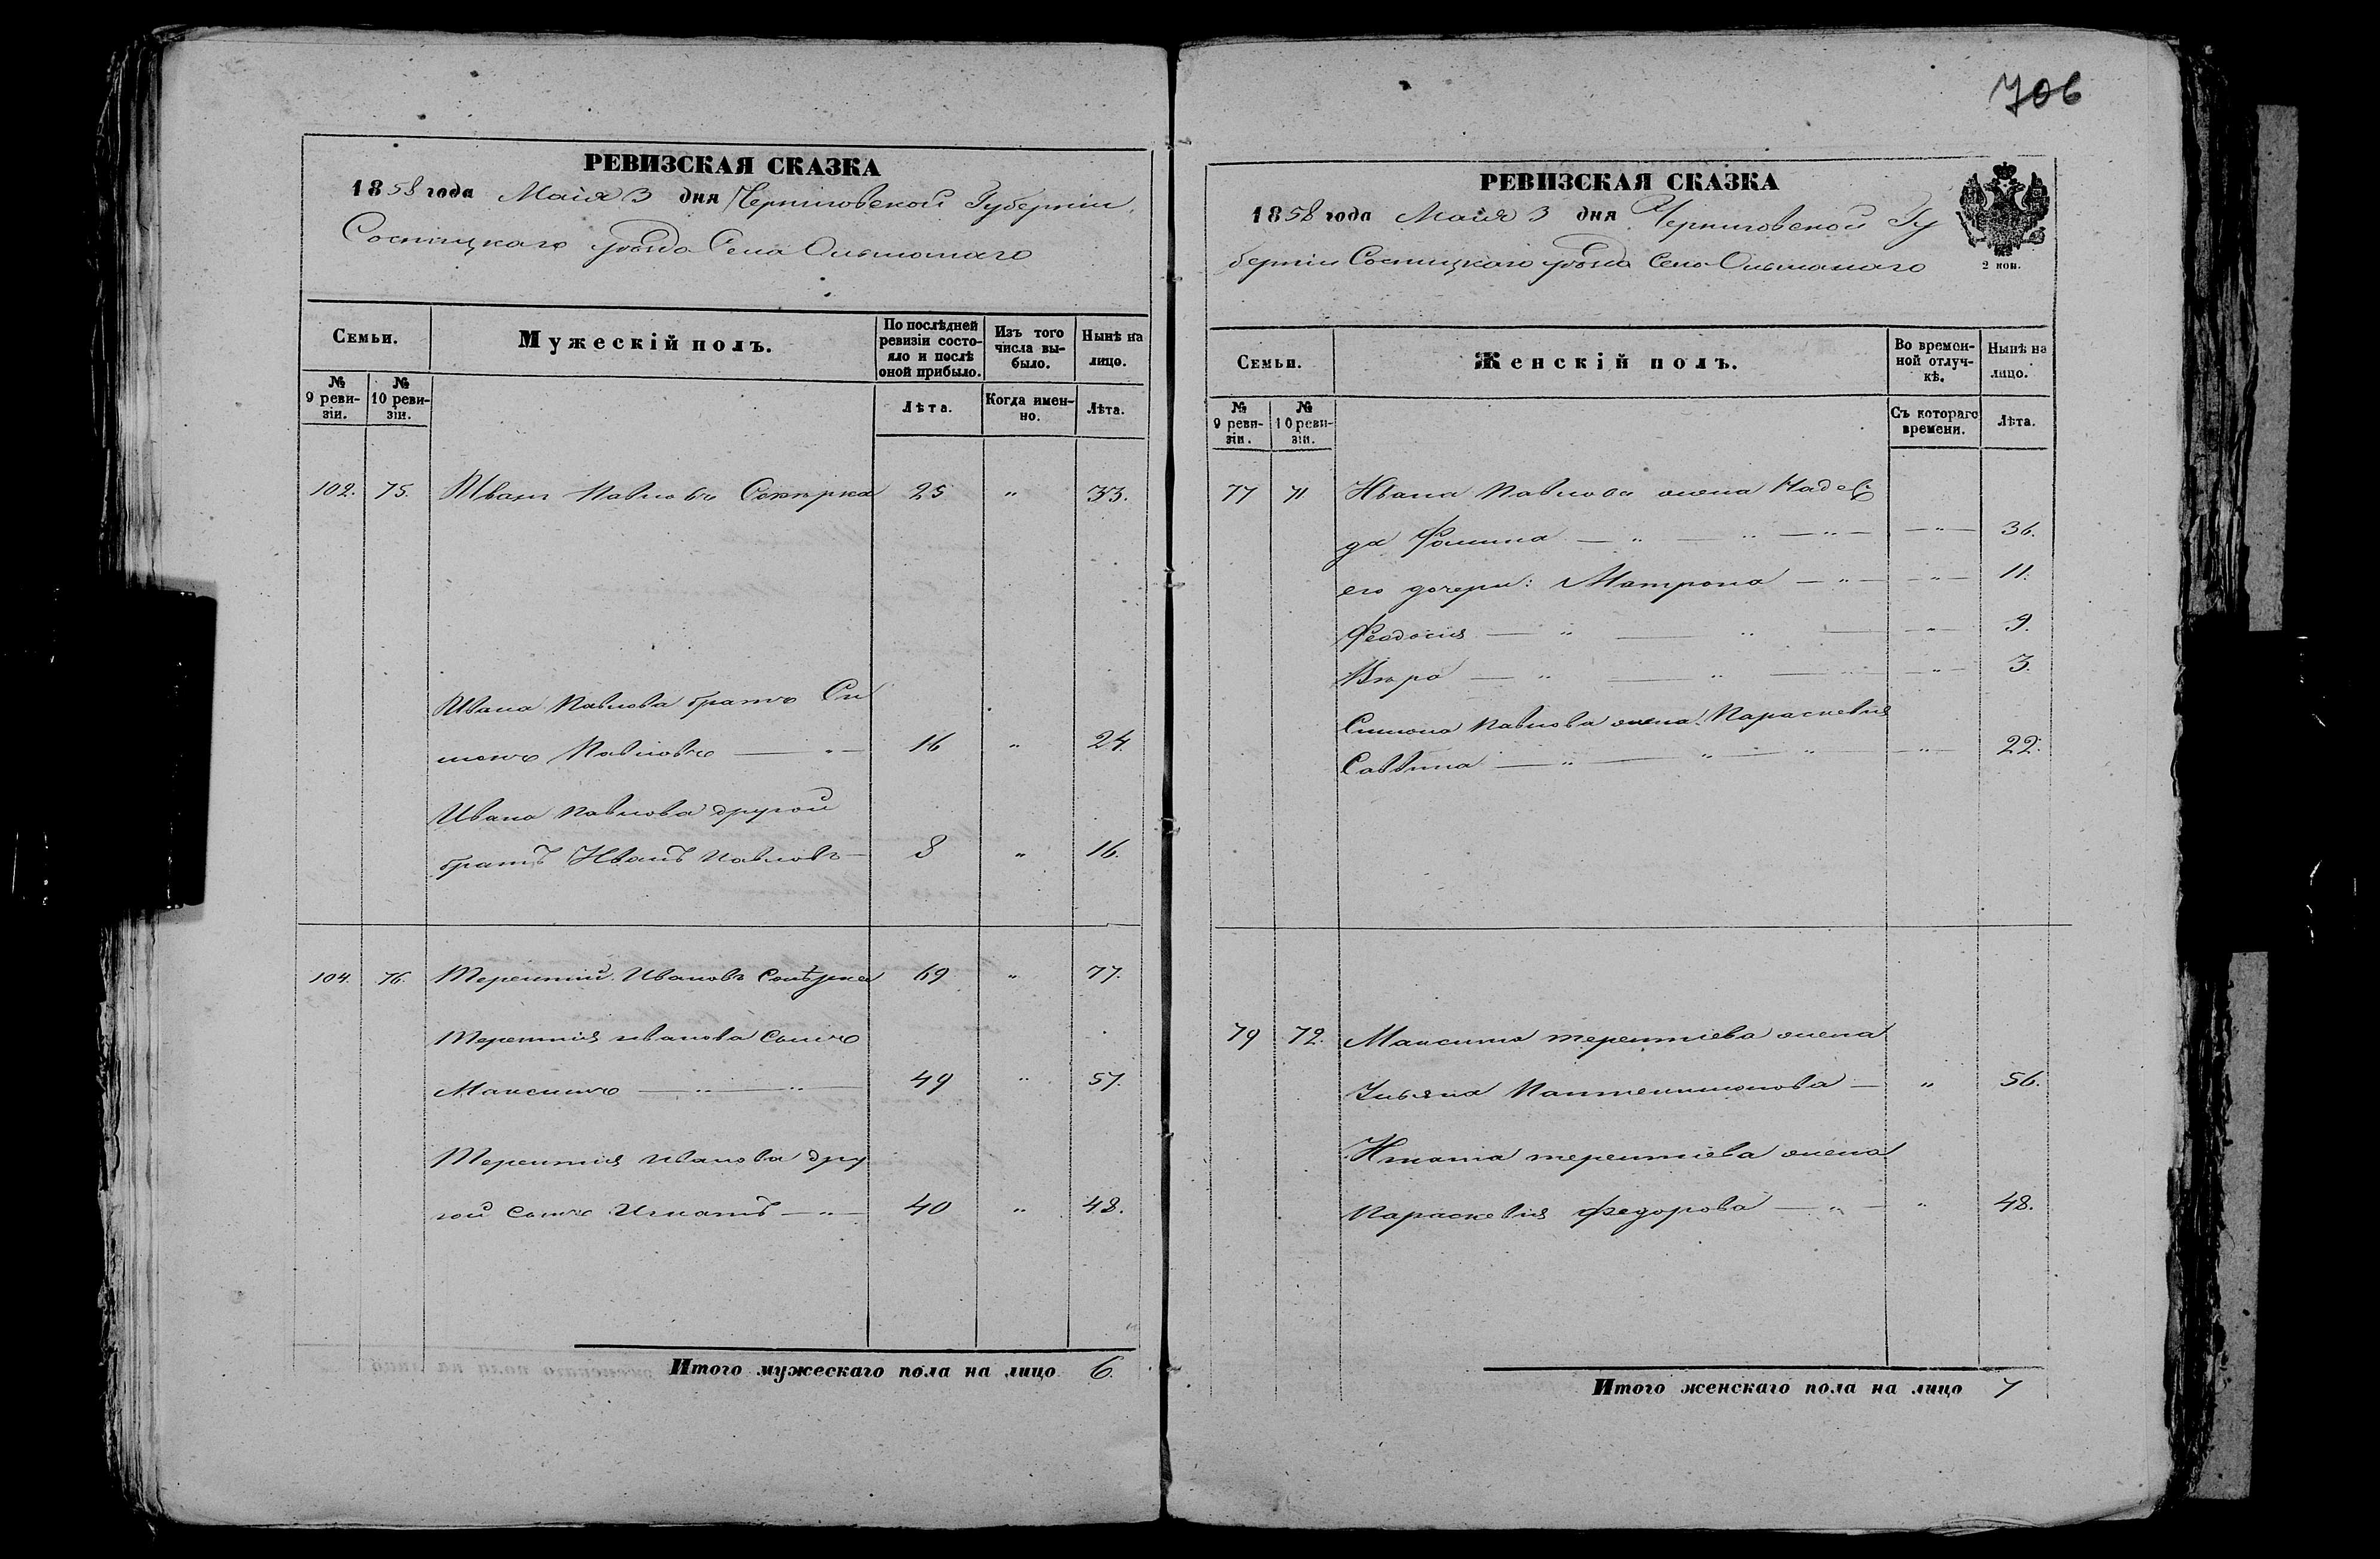 706
РЕВИЗСКАЯ СКАЗКА
1858 года Маія 3 дня Черниговской Губерніи,
Сосницкаго уѣзда Села Ольшанаго
Семьи.
Мужескій полъ.
По послѣдней ревизіи состояло и послѣ оной прибыло.
Изъ того числа выбыло.
Нынѣ на лицо.
№ 9 ревизіи.
№ 10 ревизіи.
Лѣта.
Когда именно.
Лѣта.
102. 75. Иванъ Павловъ 25 " 33.
Ивана Павлова братъ Си
монъ Павловъ — " — 16 " 24.
Ивана Павлова другой
братъ Иванъ Павловъ — 8 " 16.
104. 76. Терентій Ивановъ 69 " 77.
Терентія иванова сынъ
Максимъ — " — " — 49 " 57.
Терентія Иванова дру
гой сынъ Игнатъ — " — 40 " 48.
Итого мужескаго пола на лицо 6.
РЕВИЗСКАЯ СКАЗКА
1858 года Маія 3 дня Черниговской Гу
берніи Сосницкаго уѣзда Села Ольшанаго
2 коп.
Семьи.
Женскій полъ.
Во временной отлучкѣ.
Нынѣ на лицо.
№ 9 ревизіи.
№ 10 ревизіи.
Съ котораго времени.
Лѣта.
77 71. Ивана Павлова жена Надеж
да Фомина — " — " — " — — " — 36.
его дочери: Матрона — " — — " — 11.
Феодосія — " — " — — " — 9.
Вѣра — " — " — " — — " — 3.
Симона Павлова жена Параскевія
Саввина — " — " — " — " — 22.
79 72. Максима терентіева жена
Ульяна Пантелимонова — " 56.
Игната терентіева жена
Параскевія Федорова — " — " 48.
Итого женскаго пола на лицо 7